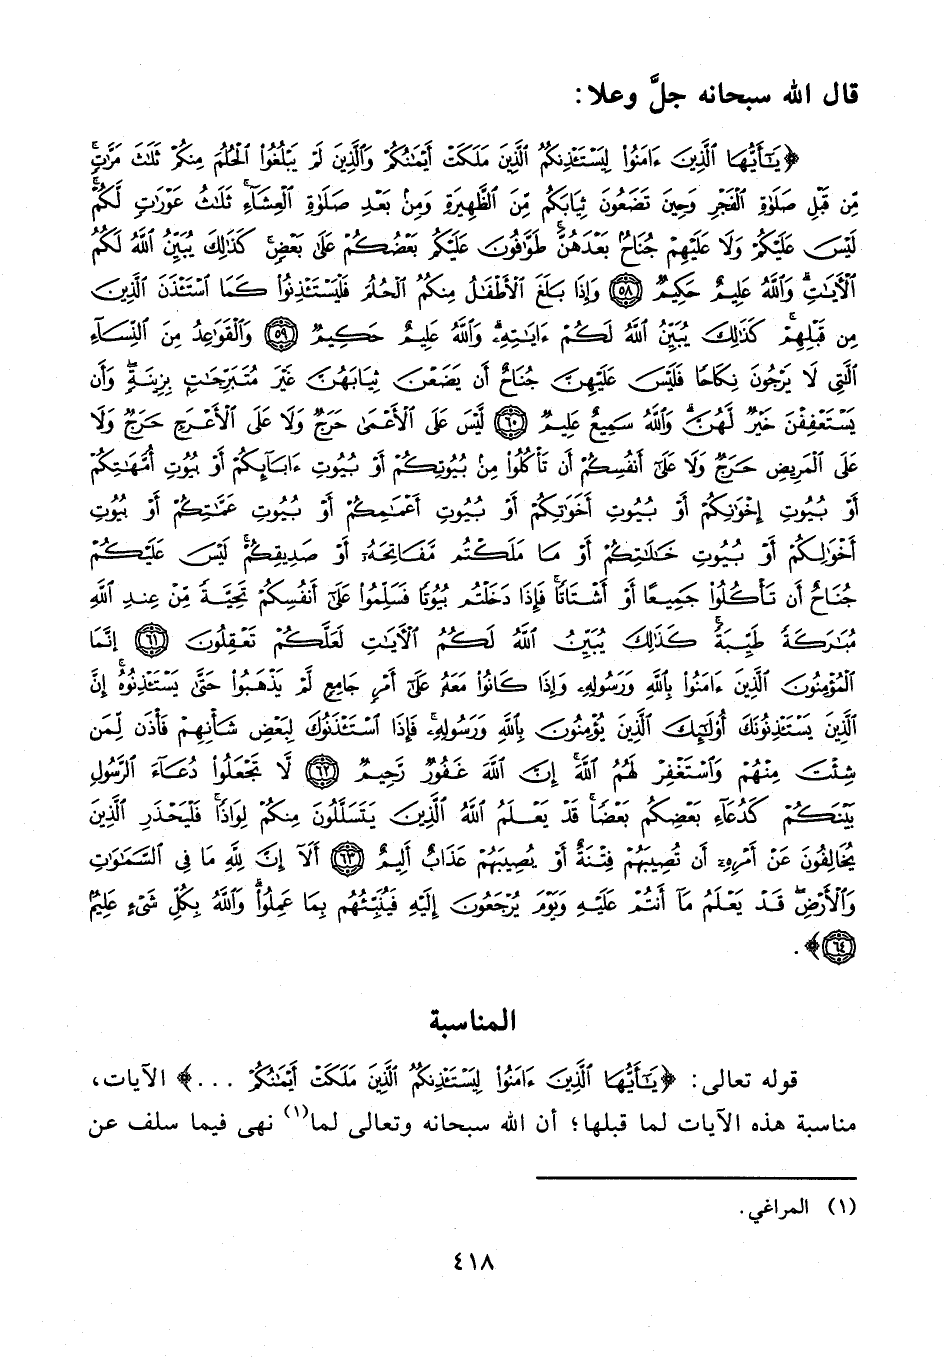 قال الله سبحانه جلَّ وعلا:
﴿يَٰٓأَيُّهَا ٱلَّذِينَ ءَامَنُواْ لِيَسْتَـْٔذِنكُمُ ٱلَّذِينَ مَلَكَتْ أَيْمَٰنُكُمْ وَٱلَّذِينَ لَمْ يَبْلُغُواْ ٱلْحُلُمَ مِنكُمْ ثَلَٰثَ مَرَّٰتٍ ۚ
مِّن قَبْلِ صَلَوٰةِ ٱلْفَجْرِ وَحِينَ تَضَعُونَ ثِيَابَكُم مِّنَ ٱلظَّهِيرَةِ وَمِنۢ بَعْدِ صَلَوٰةِ ٱلْعِشَآءِ ۚ ثَلَٰثُ عَوْرَٰتٍ لَّكُمْ ۚ
لَيْسَ عَلَيْكُمْ وَلَا عَلَيْهِمْ جُنَاحٌۢ بَعْدَهُنَّ ۚ طَوَّٰفُونَ عَلَيْكُم بَعْضُكُمْ عَلَىٰ بَعْضٍ ۚ كَذَٰلِكَ يُبَيِّنُ ٱللَّهُ لَكُمُ
ٱلْءَايَٰتِ ۗ وَٱللَّهُ عَلِيمٌ حَكِيمٌ ٥٨ وَإِذَا بَلَغَ ٱلْأَطْفَٰلُ مِنكُمُ ٱلْحُلُمَ فَلْيَسْتَـْٔذِنُواْ كَمَا ٱسْتَـْٔذَنَ ٱلَّذِينَ
مِن قَبْلِهِمْ ۚ كَذَٰلِكَ يُبَيِّنُ ٱللَّهُ لَكُمْ ءَايَٰتِهِۦ ۗ وَٱللَّهُ عَلِيمٌ حَكِيمٌ ٥٩ وَٱلْقَوَٰعِدُ مِنَ ٱلنِّسَآءِ
ٱلَّٰتِى لَا يَرْجُونَ نِكَاحًا فَلَيْسَ عَلَيْهِنَّ جُنَاحٌ أَن يَضَعْنَ ثِيَابَهُنَّ غَيْرَ مُتَبَرِّجَٰتٍۭ بِزِينَةٍ ۖ وَأَن
يَسْتَعْفِفْنَ خَيْرٌ لَّهُنَّ ۗ وَٱللَّهُ سَمِيعٌ عَلِيمٌ ٦٠ لَّيْسَ عَلَى ٱلْأَعْمَىٰ حَرَجٌ وَلَا عَلَى ٱلْأَعْرَجِ حَرَجٌ وَلَا
عَلَى ٱلْمَرِيضِ حَرَجٌ وَلَا عَلَىٰٓ أَنفُسِكُمْ أَن تَأْكُلُواْ مِنۢ بُيُوتِكُمْ أَوْ بُيُوتِ ءَابَآئِكُمْ أَوْ بُيُوتِ أُمَّهَٰتِكُمْ
أَوْ بُيُوتِ إِخْوَٰنِكُمْ أَوْ بُيُوتِ أَخَوَٰتِكُمْ أَوْ بُيُوتِ أَعْمَٰمِكُمْ أَوْ بُيُوتِ عَمَّٰتِكُمْ أَوْ بُيُوتِ
أَخْوَٰلِكُمْ أَوْ بُيُوتِ خَٰلَٰتِكُمْ أَوْ مَا مَلَكْتُم مَّفَاتِحَهُۥٓ أَوْ صَدِيقِكُمْ ۚ لَيْسَ عَلَيْكُمْ
جُنَاحٌ أَن تَأْكُلُواْ جَمِيعًا أَوْ أَشْتَاتًا ۚ فَإِذَا دَخَلْتُم بُيُوتًا فَسَلِّمُواْ عَلَىٰٓ أَنفُسِكُمْ تَحِيَّةً مِّنْ عِندِ ٱللَّهِ
مُبَٰرَكَةً طَيِّبَةً ۚ كَذَٰلِكَ يُبَيِّنُ ٱللَّهُ لَكُمُ ٱلْءَايَٰتِ لَعَلَّكُمْ تَعْقِلُونَ ٦١ إِنَّمَا
ٱلْمُؤْمِنُونَ ٱلَّذِينَ ءَامَنُواْ بِٱللَّهِ وَرَسُولِهِۦ وَإِذَا كَانُواْ مَعَهُۥ عَلَىٰٓ أَمْرٍ جَامِعٍ لَّمْ يَذْهَبُواْ حَتَّىٰ يَسْتَـْٔذِنُوهُ ۚ إِنَّ
ٱلَّذِينَ يَسْتَـْٔذِنُونَكَ أُوْلَٰٓئِكَ ٱلَّذِينَ يُؤْمِنُونَ بِٱللَّهِ وَرَسُولِهِۦ ۚ فَإِذَا ٱسْتَـْٔذَنُوكَ لِبَعْضِ شَأْنِهِمْ فَأْذَن لِّمَن
شِئْتَ مِنْهُمْ وَٱسْتَغْفِرْ لَهُمُ ٱللَّهَ ۚ إِنَّ ٱللَّهَ غَفُورٌ رَّحِيمٌ ٦٢ لَّا تَجْعَلُواْ دُعَآءَ ٱلرَّسُولِ
بَيْنَكُمْ كَدُعَآءِ بَعْضِكُم بَعْضًا ۚ قَدْ يَعْلَمُ ٱللَّهُ ٱلَّذِينَ يَتَسَلَّلُونَ مِنكُمْ لِوَاذًا ۚ فَلْيَحْذَرِ ٱلَّذِينَ
يُخَالِفُونَ عَنْ أَمْرِهِۦٓ أَن تُصِيبَهُمْ فِتْنَةٌ أَوْ يُصِيبَهُمْ عَذَابٌ أَلِيمٌ ٦٣ أَلَآ إِنَّ لِلَّهِ مَا فِى ٱلسَّمَٰوَٰتِ
وَٱلْأَرْضِ ۖ قَدْ يَعْلَمُ مَآ أَنتُمْ عَلَيْهِ وَيَوْمَ يُرْجَعُونَ إِلَيْهِ فَيُنَبِّئُهُم بِمَا عَمِلُواْ ۗ وَٱللَّهُ بِكُلِّ شَىْءٍ عَلِيمٌۢ
٦٤﴾.
المناسبة
قوله تعالى: ﴿يَٰٓأَيُّهَا ٱلَّذِينَ ءَامَنُواْ لِيَسْتَـْٔذِنكُمُ ٱلَّذِينَ مَلَكَتْ أَيْمَٰنُكُمْ ...﴾ الآيات،
مناسبة هذه الآيات لما قبلها؛ أن الله سبحانه وتعالى لما(١) نهى فيما سلف عن
(١) المراغي.
٤١٨